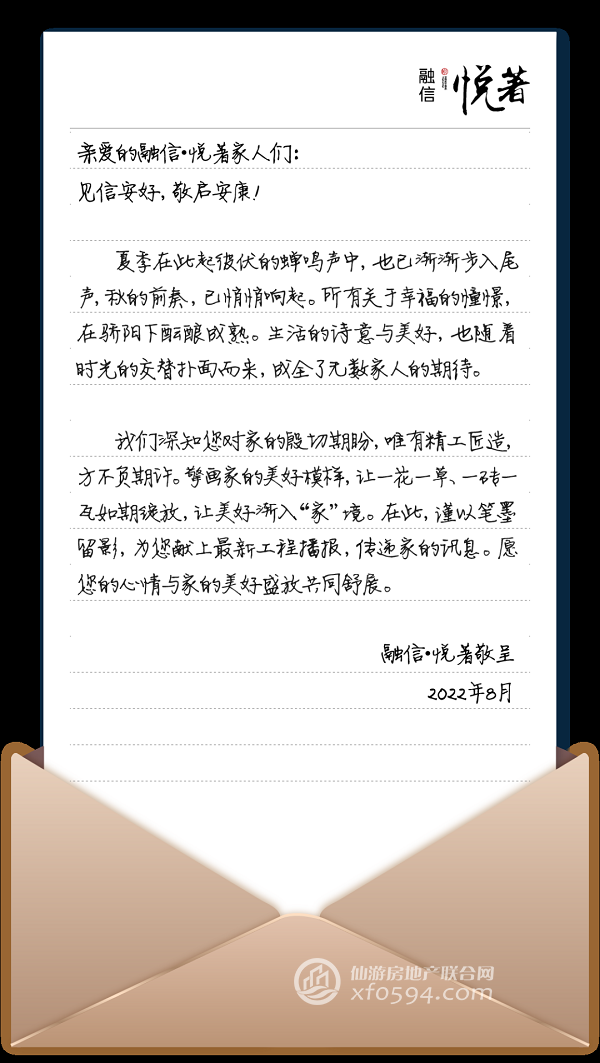 融信 悦著
亲爱的融信·悦著家人们：
见信安好，敬启安康！
夏季在此起彼伏的蝉鸣声中，也已渐渐步入尾
声，秋的前奏，已悄悄响起。所有关于幸福的憧憬，
在骄阳下酝酿成熟。生活的诗意与美好，也随着
时光的交替扑面而来，成全了无数家人的期待。
我们深知您对家的殷切期盼，唯有精工匠造，
方不负期许。擘画家的美好模样，让一花一草、一砖一
瓦如期绽放，让美好渐入“家”境。在此，谨以笔墨
留影，为您献上最新工程播报，传递家的讯息。愿
您的心情与家的美好盛放共同舒展。
融信·悦著敬呈
2022年8月
仙游房地产联合网
xf0594.com